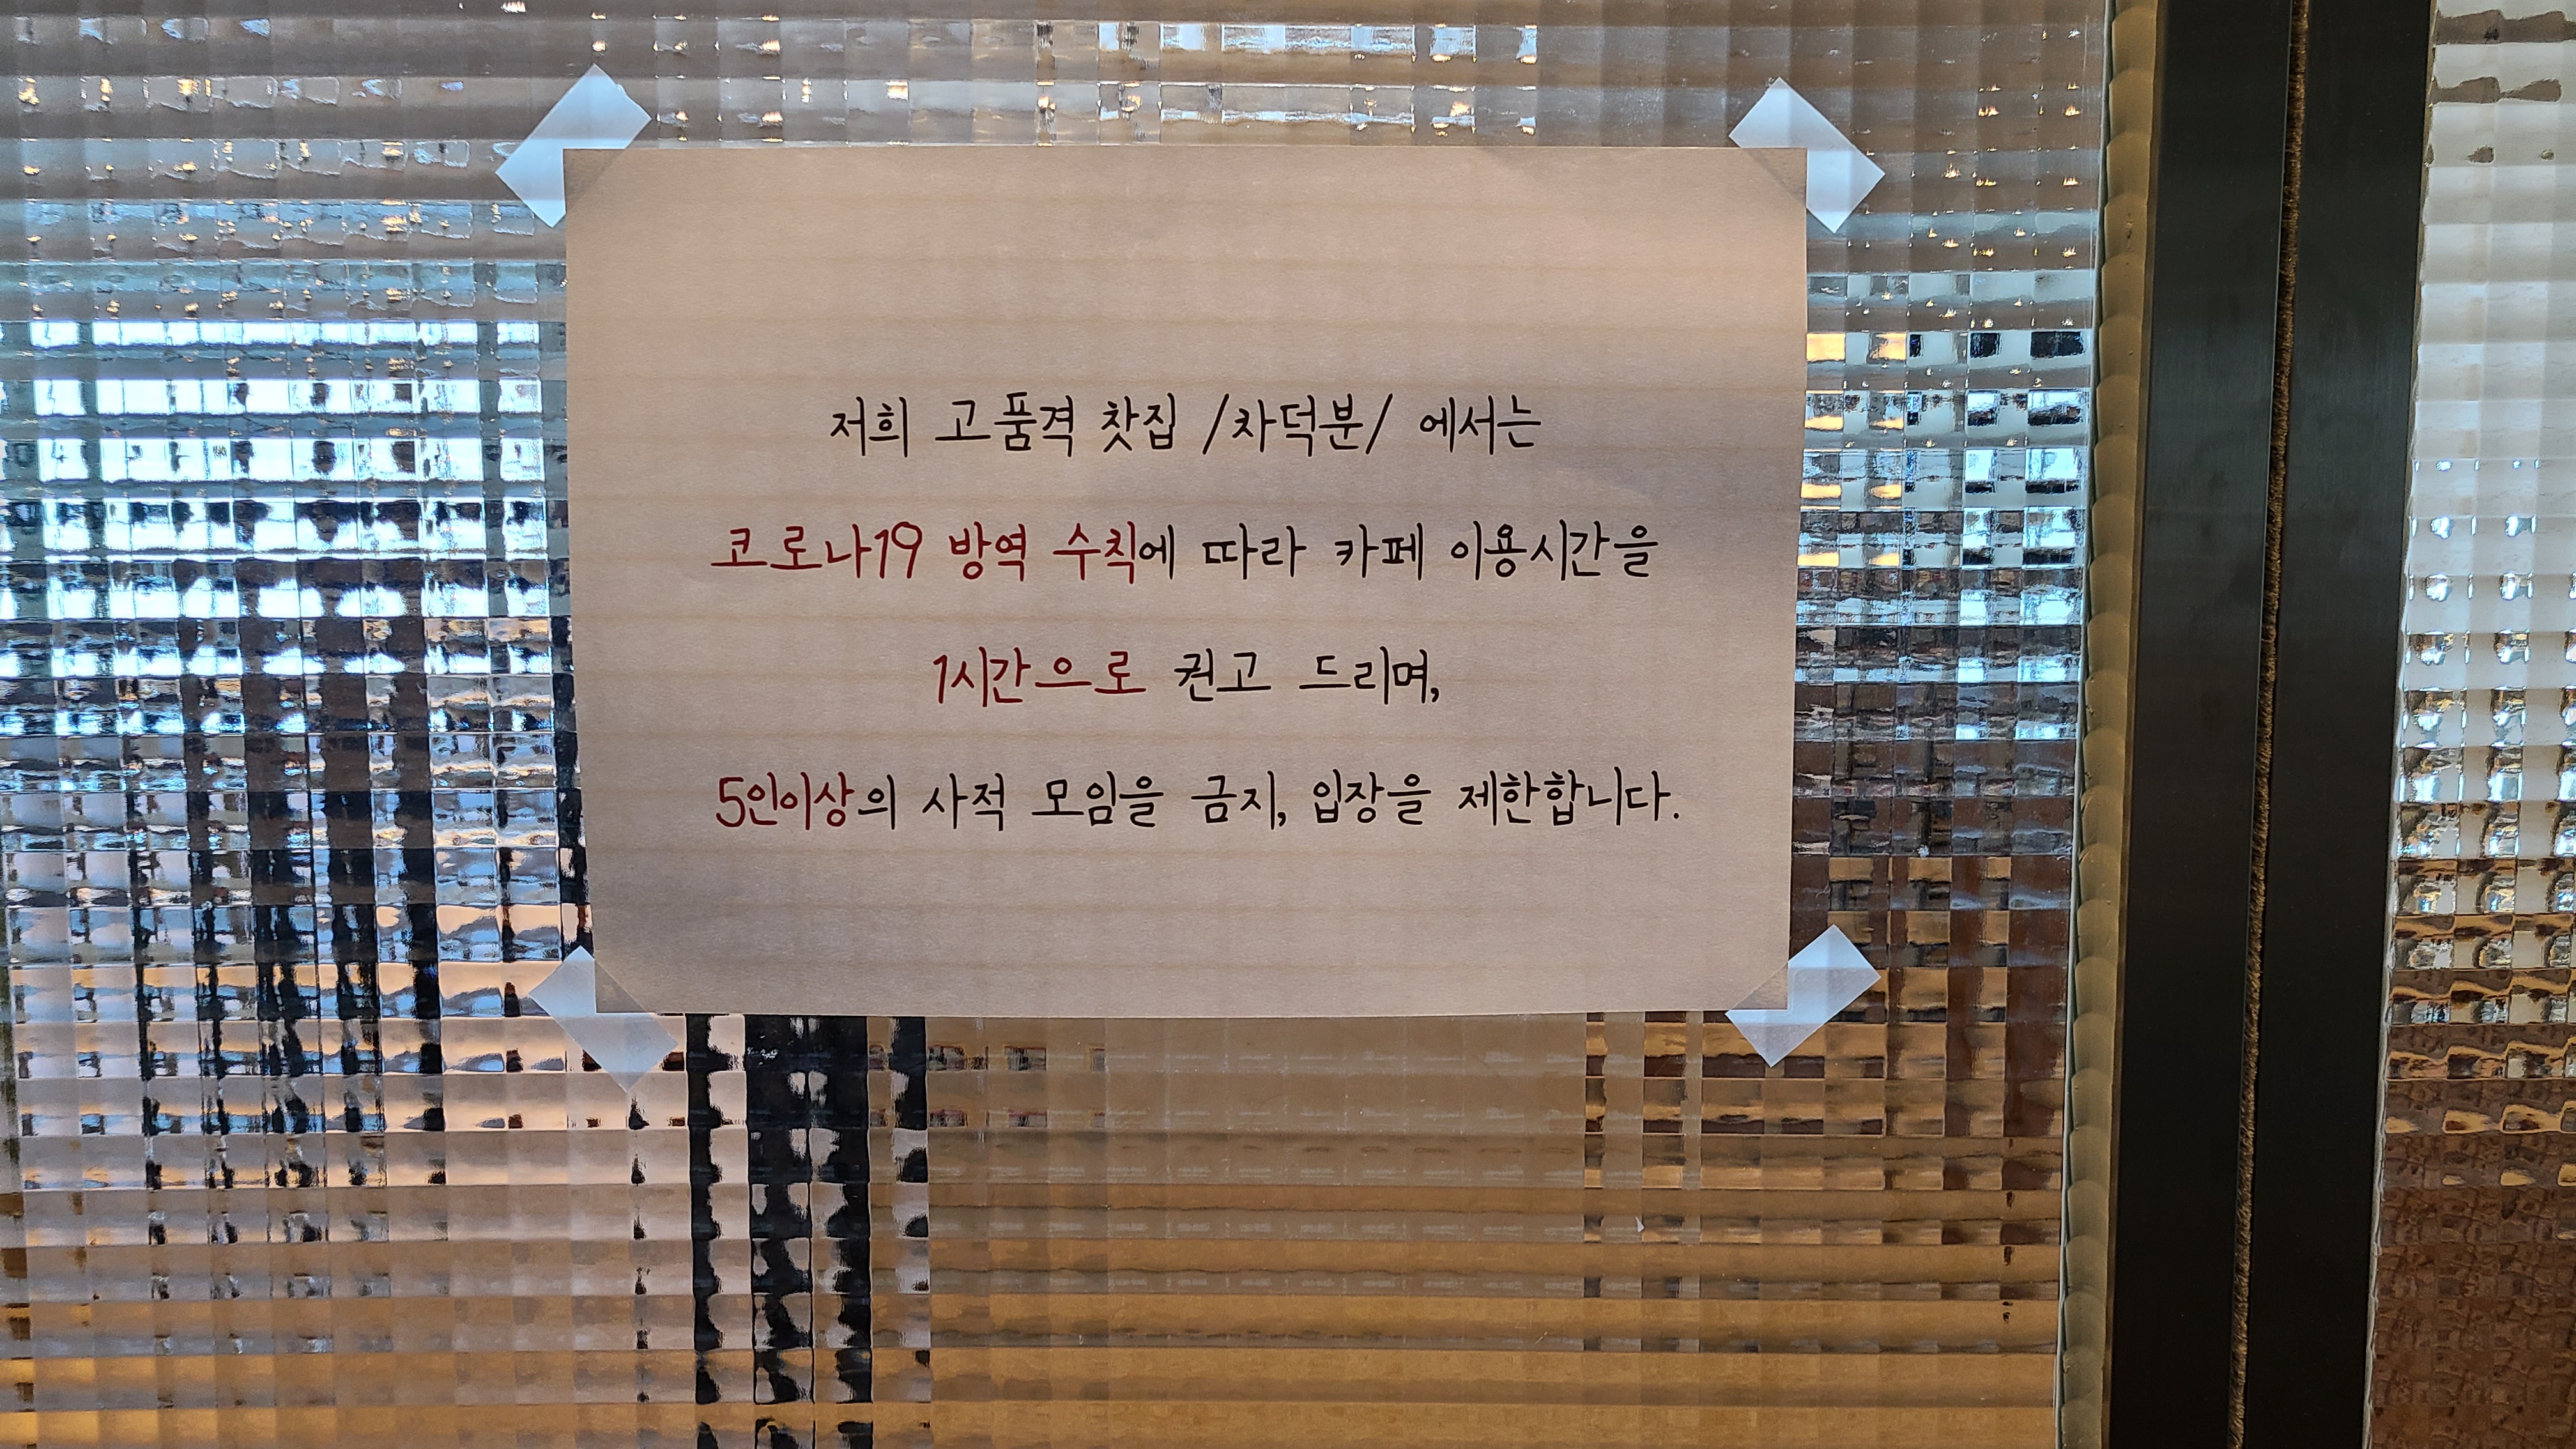 저희 고품격 찻집 /차덕분/ 에서는
코로나19 방역 수칙에 따라 카페 이용시간을
1시간으로 권고 드리며,
5인이상의 사적 모임을 금지, 입장을 제한합니다.